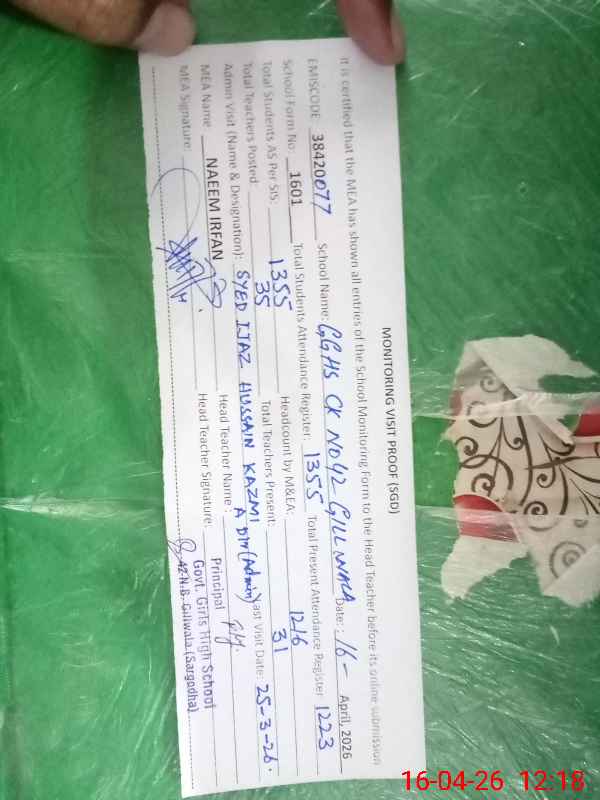 MONITORING VISIT PROOF (SGD)
It is certified that the MEA has shown all entries of the School Monitoring Form to the Head Teacher before its online submission
EMISCODE 38420077 School Name: GGHS CK NO 42 GILLWALA Date: 16- April, 2026
School Form No: 1601 Total Students Attendance Register: 1355 Total Present Attendance Register 1223
Total Students AS Per SIS: 1355 Headcount by M&EA: 1216
Total Teachers Posted: 35 Total Teachers Present: 31
Admin Visit (Name & Designation): SYED IJAZ HUSSAIN KAZMI A DIR (Admin) Last Visit Date: 25-3-26.
MEA Name NAEEM IRFAN Head Teacher Name:
MEA Signature: Head Teacher Signature:
Principal
Govt. Girls High School
42 N.B. Gillwala (Sargodha)
16-04-26 12:18